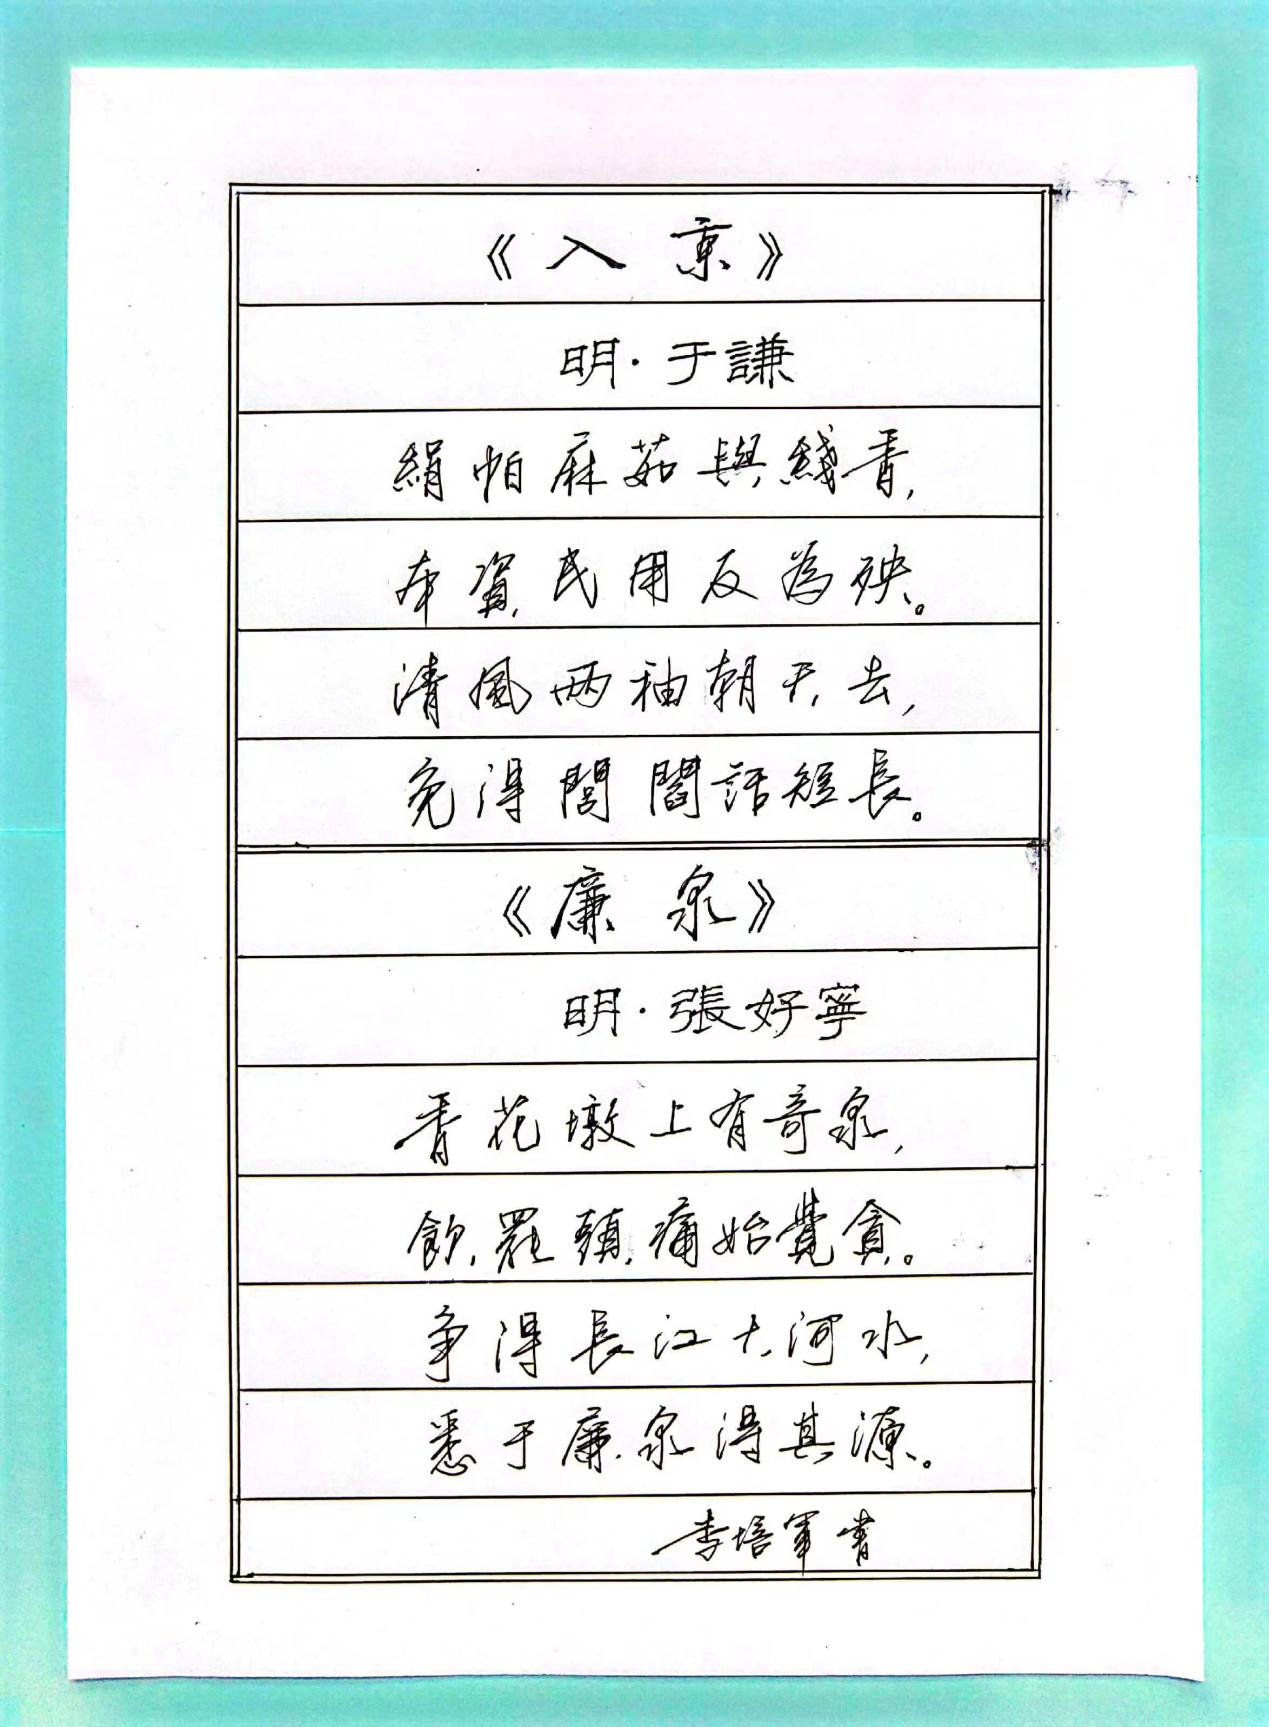 《入京》
明·于謙
絹帕麻菇與綫香，
本資民用反為殃。
清風兩袖朝天去，
免得閭閻話短長。
《廉泉》
明·張好寧
香花墩上有奇泉，
飲罷頭痛始覺貪。
爭得長江大河水，
悉于廉泉得其源。
李培軍書